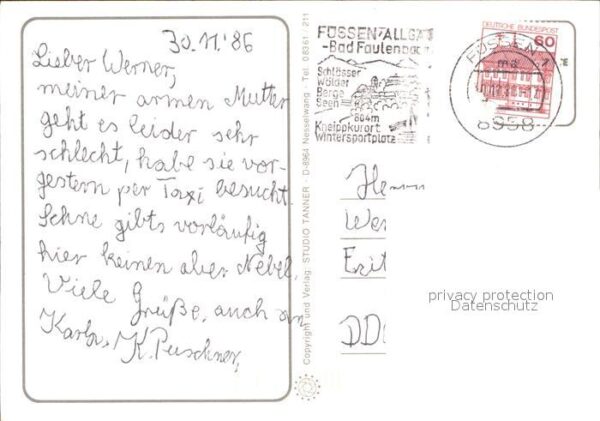 30.11.'86
Lieber Werner,
meiner armen Mutter
geht es leider sehr
schlecht, habe sie vor-
gestern per Taxi besucht.
Schne gibts vorläufig
hier keinen aber Nebel.
Viele Grüße, auch an
K. Puschner,
Copyright und Verlag: STUDIO TANNER · D-8964 Nesselwang · Tel. 0 83 61 211
FÜSSEN/ALLGÄ
-Bad Faulenbach
Schlösser
Wälder
Berge
Seen
804m
Kneippkurort
Wintersportplatz
DEUTSCHE BUNDESPOST
60
FÜSSEN 1
ma
8958
Herrn
Wer
DD
privacy protection
Datenschutz